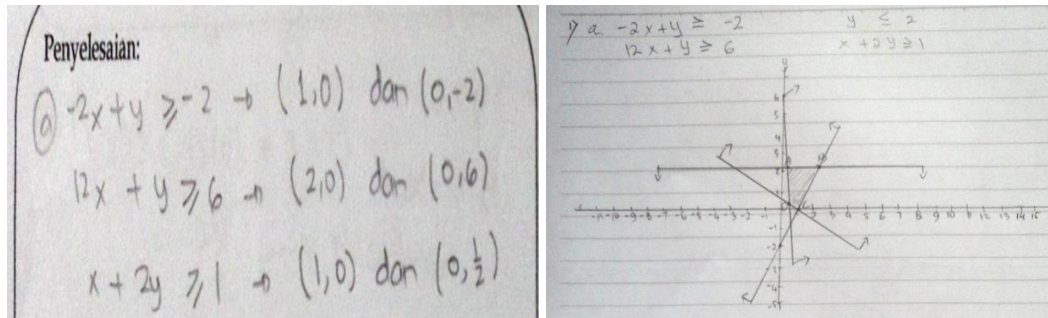 Penyelesaian:
a -2x + y ≥ -2 → (1,0) dan (0,-2)
12x + y ≥ 6 → (2,0) dan (0,6)
x + 2y ≥ 1 → (1,0) dan (0,½)
1) a. -2x + y ≥ -2 y ≤ 2
12x + y ≥ 6 x + 2y ≥ 1
y
6
5
4
3
2
-11 -10 -9 -8 -7 -6 -5 -4 -3 -2 -1 2 3 4 5 6 7 8 9 10 11 12 13 14 15
-1
-2
-3
-4
-5